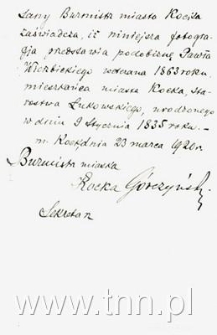 Burmistrz miasta Kocka
zaświadcza, iż niniejsza fotogra-
fja przedstawia podobiznę Pawła
Wierzbickiego weterana 1863 roku
mieszkańca miasta Kocka sta-
rostwa Łukowskiego, urodzonego
w dniu 9 Stycznia 1835 roku.
m. Kock dnia 23 marca 1920 r.
Burmistrz miasta
Kocka Górczyński
Sekretarz
www.tnn.pl